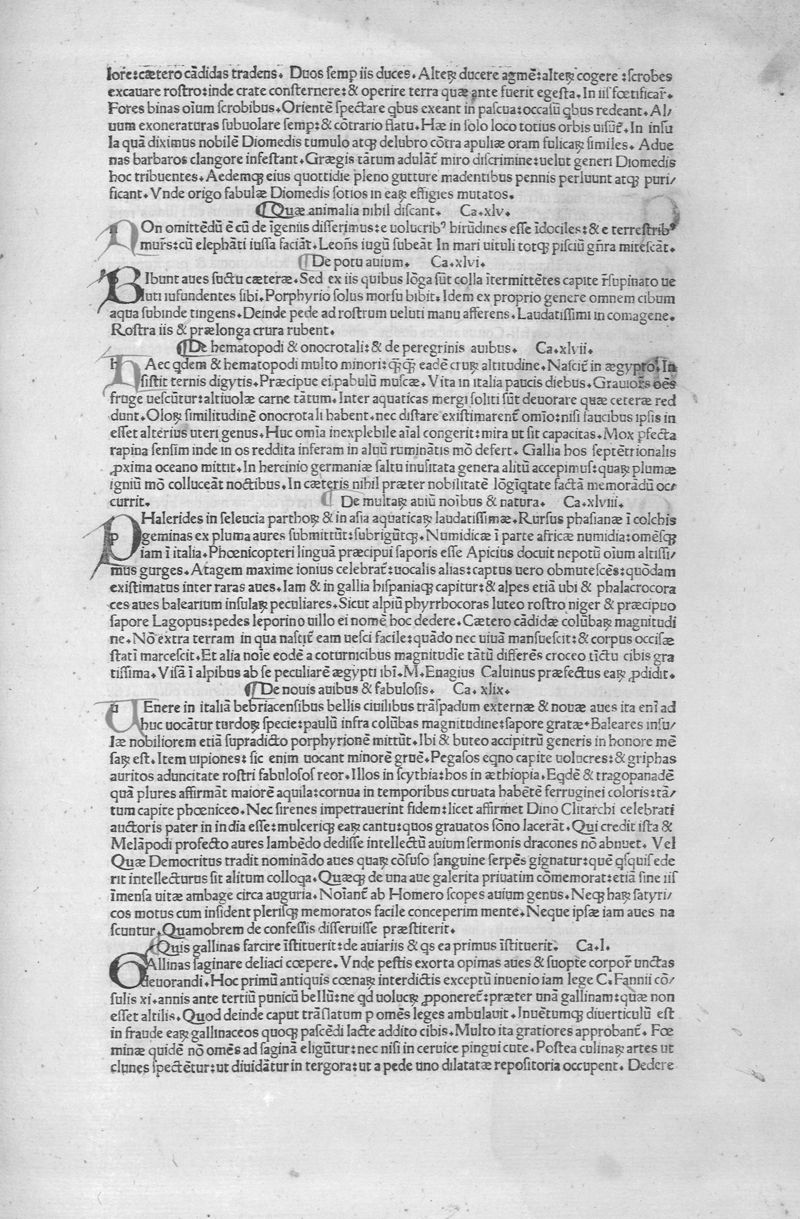 lore:cætero cãdidas tradens. Duos semp iis duces. Alteꝝ ducere agmẽ:alteꝝ cogere :scrobes
excauare rostro:inde crate consternere:& operire terra quæ ante fuerit egesta. In iis fœtificar̃.
Fores binas oĩum scrobibus. Orientẽ spectare qbus exeant in pascua:occasũ qbus redeant. Al/
uum exoneraturas subuolare semp:& cõtrario flatu. Hæ in solo loco totius orbis uisũt̃. In insu
la quã diximus nobilẽ Diomedis tumulo atqꝫ delubro cõtra apuliæ oram fulicaꝝ similes. Adue
nas barbaros clangore infestant. Græcis tãtum adulãt̃ miro discrimine:uelut generi Diomedis
hoc tribuentes. Aedemqꝫ eius quottidie pleno gutture madentibus pennis perluunt atqꝫ puri/
ficant. Vnde origo fabulæ Diomedis sotios in eaꝝ effigies mutatos.
¶ Quæ animalia nihil discant. Ca.xlv.
On omittẽdũ ẽ cũ de ĩgeniis disserimus:e uolucribꝰ hirũdines esse ĩdociles:& e terrestribꝰ
mur̃s:cũ elephãti iussa faciãt. Leoñs iugũ subeãt In mari uituli totqꝫ pisciũ gñra mitescãt.
¶ De potu auium. Ca.xlvi.
B Ibunt aues suctu cæteræ. Sed ex iis quibus lõga sũt colla ĩtermittẽtes capite r̃supinato ue
luti iufundentes sibi. Porphyrio solus morsu bibit. Idem ex proprio genere omnem cibum
aqua subinde tingens. Deinde pede ad rostrum ueluti manu afferens. Laudatissimi in comagene.
Rostra iis & prælonga crura rubent.
¶ De hematopodi & onocrotali:& de peregrinis auibus. Ca.xlvii.
h Aec qdem & hematopodi multo minori:qꝫqꝫ eadẽ cruꝝ altitudine. Nascit̃ in ægypto. In
sistit ternis digytis. Præcipue ei pabulũ muscæ. Vita in italia paucis diebus. Grauior̃s oẽs
fruge uescũtur:altiuolæ carne tãtum. Inter aquaticas mergi soliti sũt deuorare quæ ceteræ red
dunt. Oloꝝ similitudinẽ onocrotali habent. nec distare existimarent̃ omĩo:nisi faucibus ipsis in
esset alterius uteri genus. Huc omĩa inexplebile aĩal congerit:mira ut sit capacitas. Mox pfecta
rapina sensim inde in os reddita inferam in aluũ ruminãtis mõ defert. Gallia hos septẽtrionalis
ꝓxima oceano mittit. In hercinio germaniæ saltu inusitata genera alitũ accepimus:quaꝝ plumæ
igniũ mõ colluceãt noctibus. In cæteris nihil præter nobilitatẽ lõgĩqtate factã memorãdũ oc
currit. ¶ De multaꝝ auiũ noĩbus & natura. Ca.xlviii.
p Halerides in seleucia parthoꝝ & in asia aquaticaꝝ laudatissimæ. Rursus phasianæ ĩ colchis
geminas ex pluma aures submittũt:subrigũtqꝫ. Numidicæ ĩ parte africæ numidia:omẽsqꝫ
iam ĩ italia. Phœnicopteri linguã præcipui saporis esse Apicius docuit nepotũ oĩum altissi/
mus gurges. Atagem maxime ionius celebrat̃:uocalis alias:captus uero obmutescẽs:quõdam
existimatus inter raras aues. Iam & in gallia hispaniaqꝫ capitur:& alpes etiã ubi & phalacrocora
ces aues balearium insulaꝝ peculiares. Sicut alpiũ phyrrhocoras luteo rostro niger & præcipuo
sapore Lagopus:pedes leporino uillo ei nomẽ hoc dedere. Cætero cãdidæ colũbaꝝ magnitudi
ne. Nõ extra terram in qua nascit̃ eam uesci facile:quãdo nec uiuã mansuescit:& corpus occisæ
stati marcescit. Et alia noĩe eodẽ a coturnicibus magnitudĩe tãtũ differẽs croceo tĩctu cibis gra
tissima. Visã ĩ alpibus ab se peculiarẽ ægypti ibĩ. M. Enagius Caluinus præfectus eaꝝ ꝓdidit.
¶ De nouis auibus & fabulosis. Ca. xlix.
u Enere in italiã bebriacensibus bellis ciuilibus trãspadum externæ & nouæ aues ita enĩ ad
huc uocãtur turdoꝝ specie:paulũ infra colũbas magnitudine:sapore gratæ. Baleares insu/
læ nobiliorem etiã supradicto porphyrionẽ mittũt. Ibi & buteo accipitrũ generis in honore mẽ
saꝝ est. Item uipiones: sic enim uocant minorẽ gruẽ. Pegasos eqno capite uolucres:& griphas
auritos aduncitate rostri fabulosos reor. Illos in scythia:hos in æthiopia. Eqdẽ & tragopanadẽ
quã plures affirmãt maiorẽ aquila:cornua in temporibus curuata habẽtẽ ferruginei coloris:tã/
tum capite phœniceo. Nec sirenes impetrauerint fidem:licet affirmet Dino Clitarchi celebrati
auctoris pater in india esse:mulceriqꝫ eaꝝ cantu:quos grauatos sõno lacerãt. Qui credit ista &
Melãpodi profecto aures lambẽdo dedisse intellectũ auium sermonis dracones nõ abnuet. Vel
Quæ Democritus tradit nominãdo aues quaꝝ cõfuso sanguine serpẽs gignatur:quẽ qsquis ede
rit intellecturus sit alitum colloqa. Quæqꝫ de una aue galerita priuatim cõmemorat:etiã sine iis
ĩmensa uitæ ambage circa auguria. Noĩant̃ ab Homero scopes auium genus. Neqꝫ haꝝ satyri/
cos motus cum insident plerisqꝫ memoratos facile conceperim mente. Neque ipsæ iam aues na
scuntur. Quamobrem de confessis disseruisse præstiterit.
¶ Quis gallinas farcire ĩstituerit:de auiariis & qs ea primus ĩstituerit. Ca.l.
G Allinas saginare deliaci cœpere. Vnde pestis exorta opimas aues & suopte corpor̃ unctas
deuorandi. Hoc primũ antiquis cœnaꝝ interdictis exceptũ inuenio iam lege C. Fannii cõ/
sulis xi. annis ante tertiũ punicũ bellũ:ne qd uolucꝝ ꝓponeret̃:præter unã gallinam:quæ non
esset altilis. Quod deinde caput trãslatum p omẽs leges ambulauit. Inuẽtumqꝫ diuerticulũ est
in fraude eaꝝ gallinaceos quoqꝫ pascẽdi lacte addito cibis. Multo ita gratiores approbant̃. Fœ
minæ quidẽ nõ omẽs ad saginã eligũtur:nec nisi in ceruice pingui cute. Postea culinaꝝ artes ut
clunes spectẽtur:ut diuidãtur in tergora:ut a pede uno dilatatæ repositoria occupent. Dedere